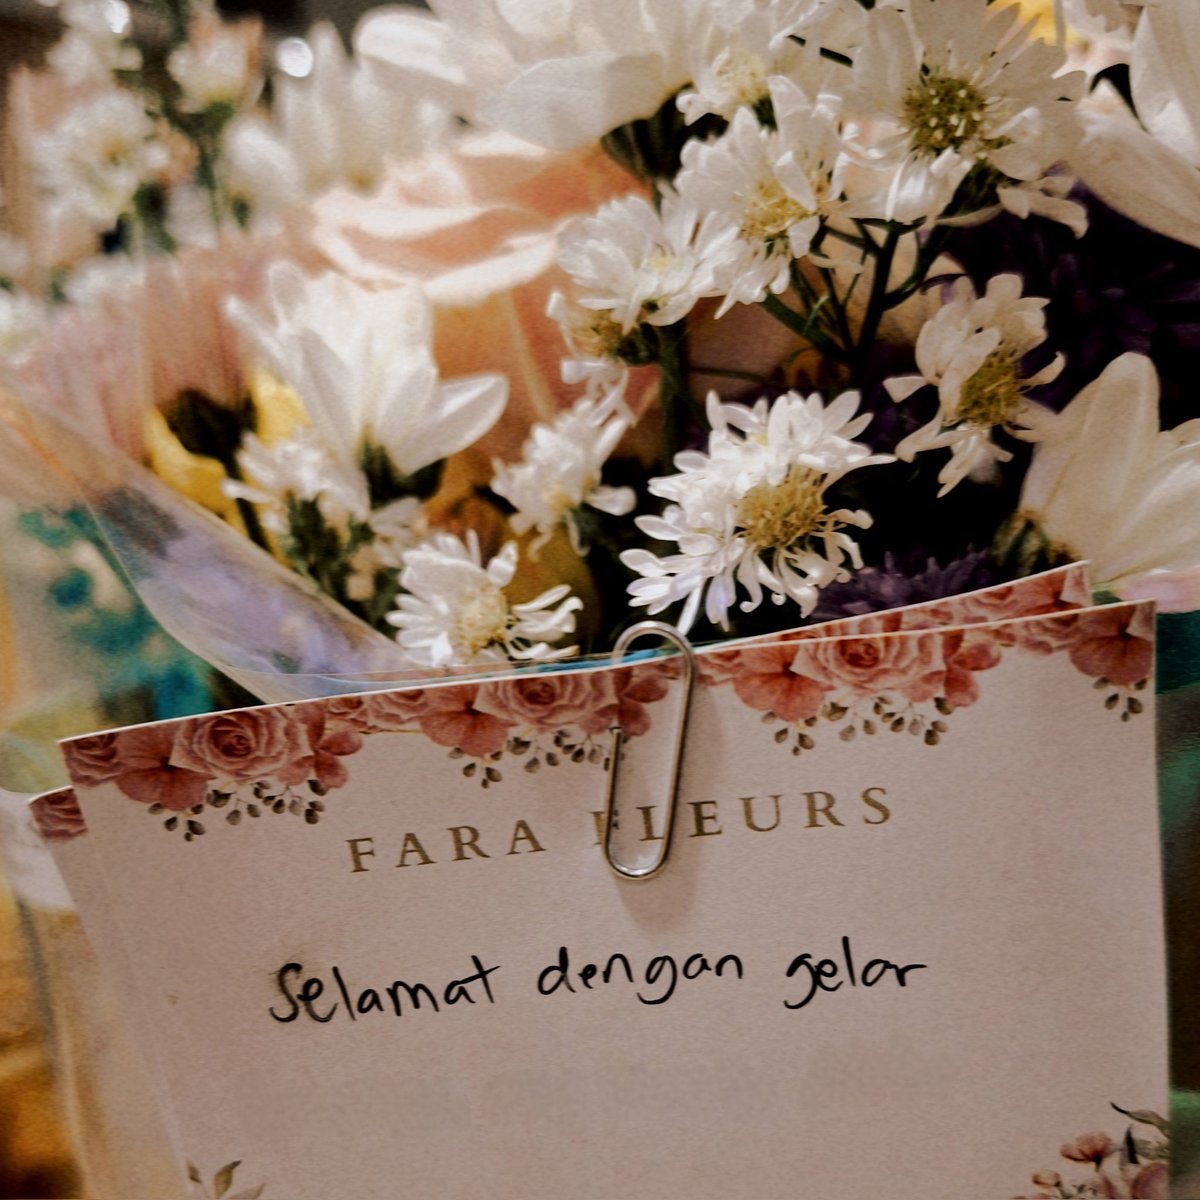 FARA FLEURS
Selamat dengan gelar